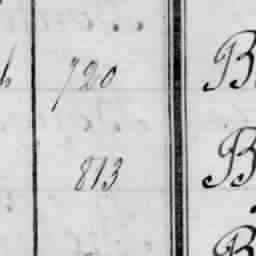 h 720 B
813 B
B